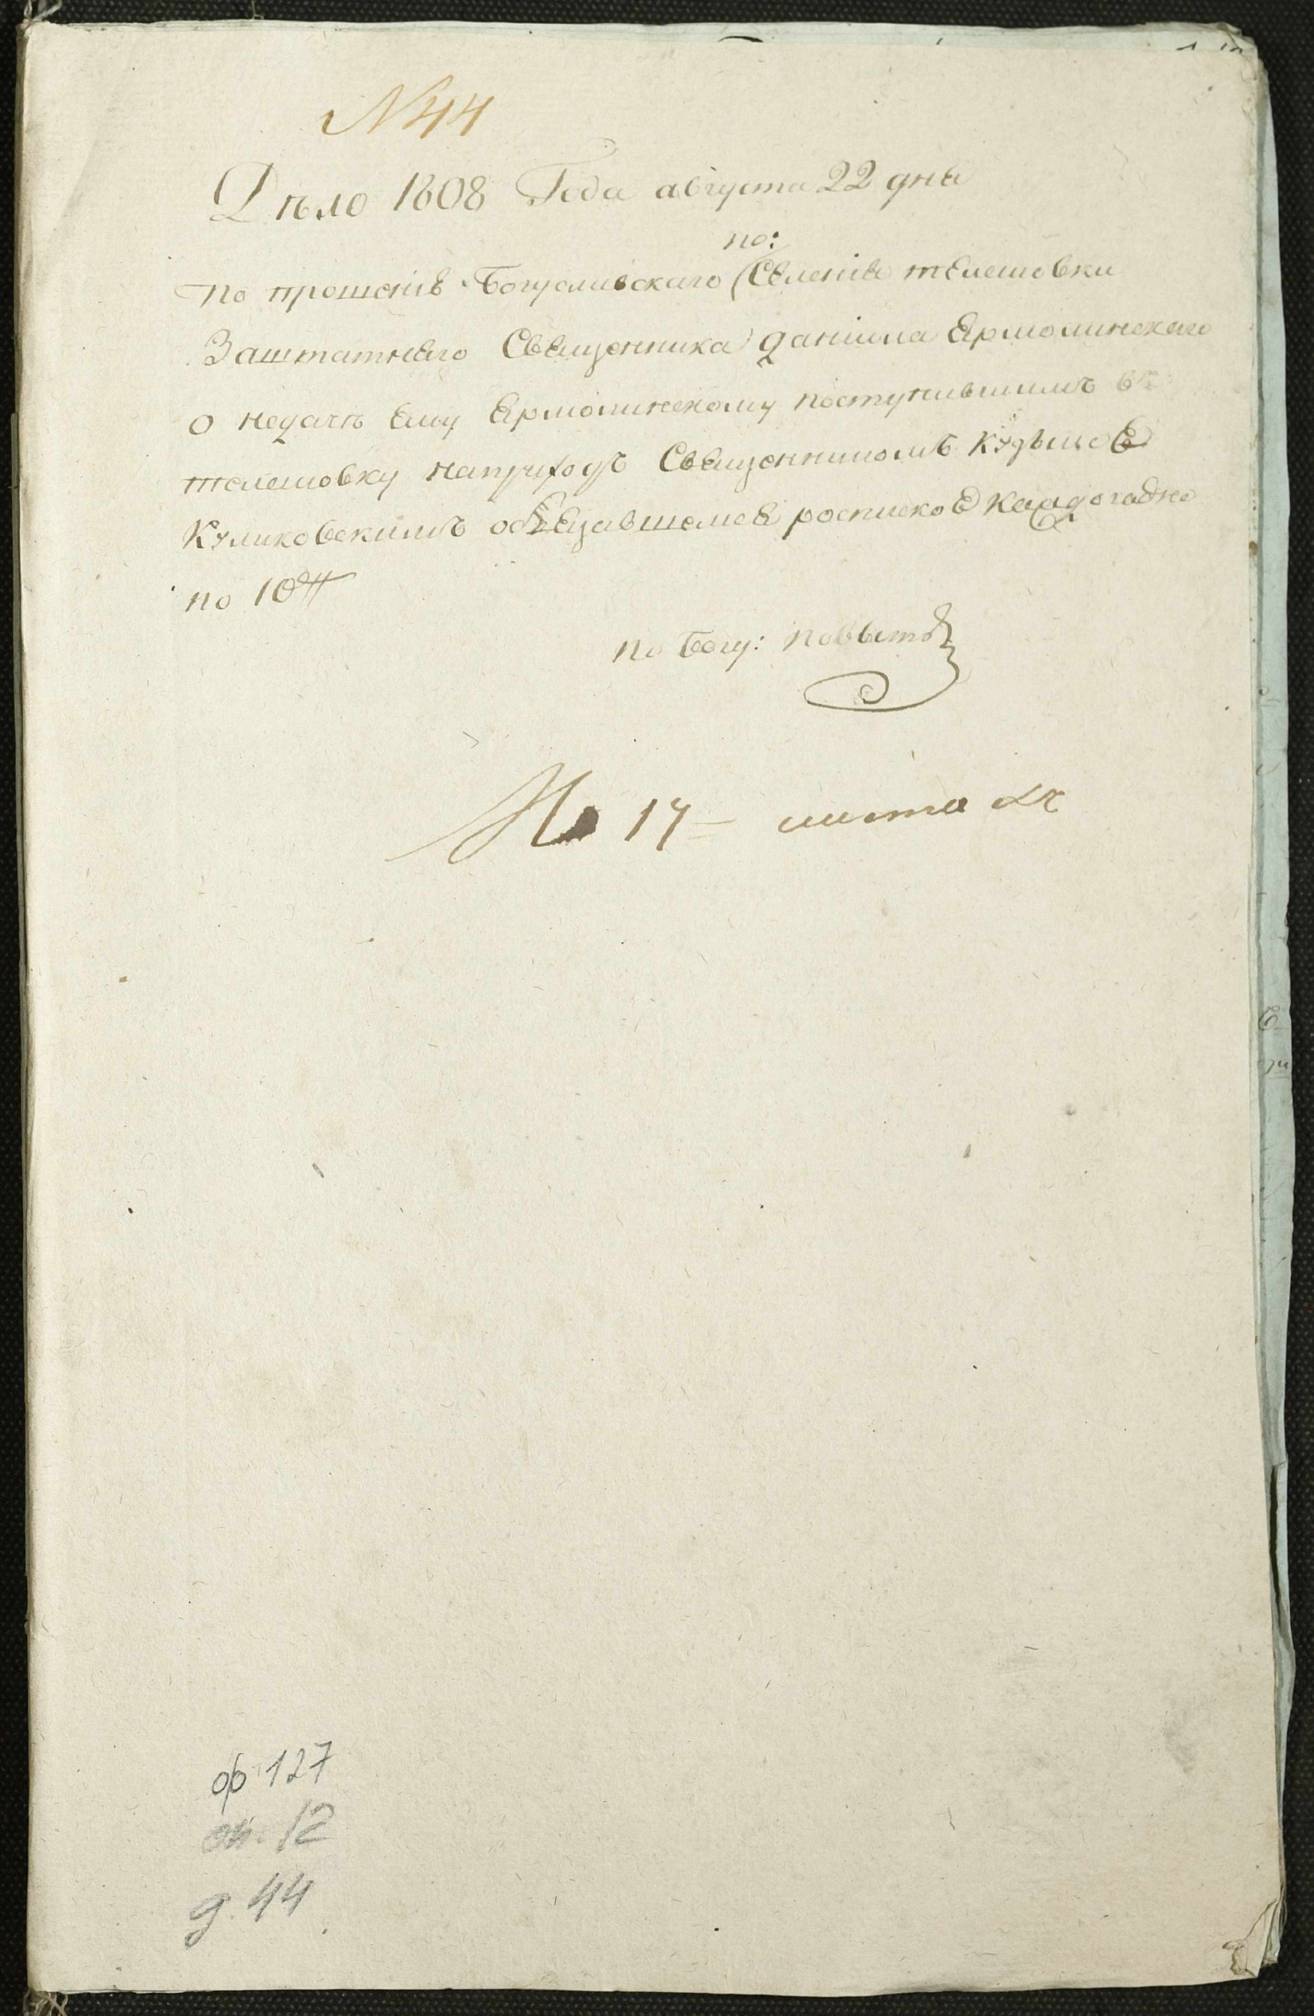 N 44
Дѣло 1808 Года августа 22 дня
по:
по прошенію Богуславского Селенія телешовки
Заштатнаго Священника даніила Ермолинского
о недачѣ Ему Ермолинскому поступившимъ въ
телешовку наприходъ Священникомъ кузьмою
куликовскимъ обѣщавшемся роспискою каждогодно
по 10
по Богу: повѣтѣ
№ 17 листа
ф 127
оп. 12
д. 44